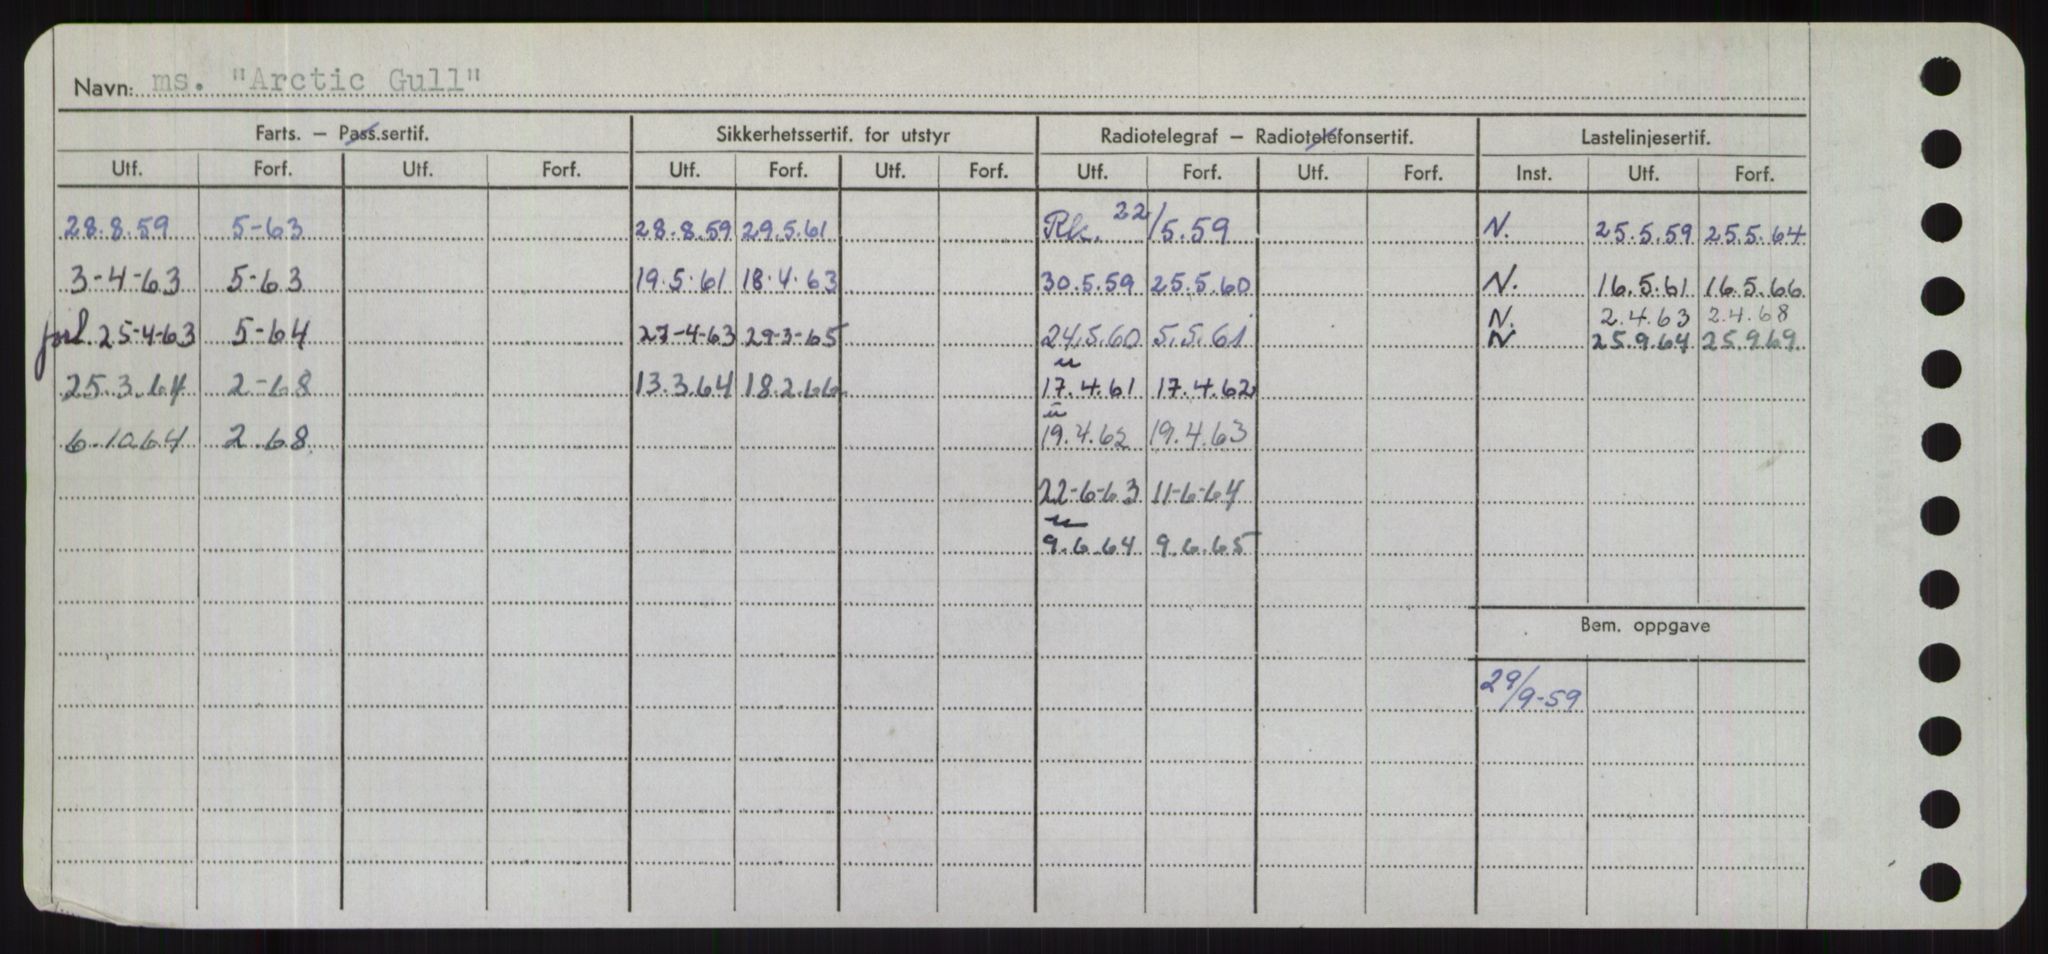 Navn: ms. "Arctic Gull"
Farts. — Pass.sertif. Sikkerhetssertif. for utstyr Radiotelegraf — Radiotelefonsertif. Lastelinjesertif.
Utf. Forf. Utf. Forf. Utf. Forf. Utf. Forf. Utf. Forf. Utf. Forf. Inst. Utf. Forf.
28.8.59 5-63 28.8.59 29.5.61 Rk. 22/5.59 N. 25.5.59 25.5.64
3-4-63 5-63 19.5.61 18.4.63 30.5.59 25.5.60 N. 16.5.61 16.5.66
N. 2.4.63 2.4.68
forl. 25-4-63 5-64 27-4-63 29-3-65 24.5.60 5.5.61 N 25.9.64 25.9.69
u
25.3.64 2-68 13.3.64 18.2.66 17.4.61 17.4.62
u
6.10.64 2.68 19.4.62 19.4.63
22-6-63 11-6-64
u
9.6.64 9.6.65
Bem. oppgave
29/9-59